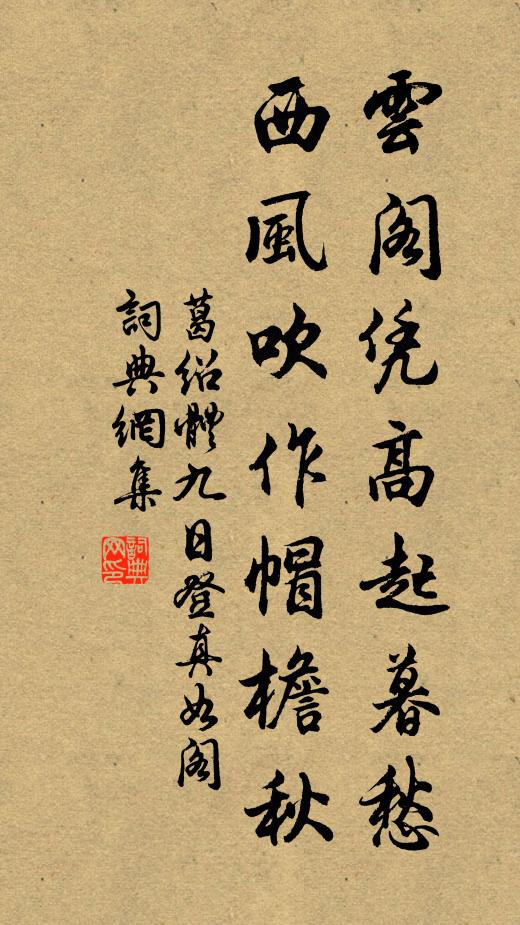 雲阁凭高起暮愁
西風吹作帽檐秋
葛紹體九日登真如阁
詞典網集
詞典網印